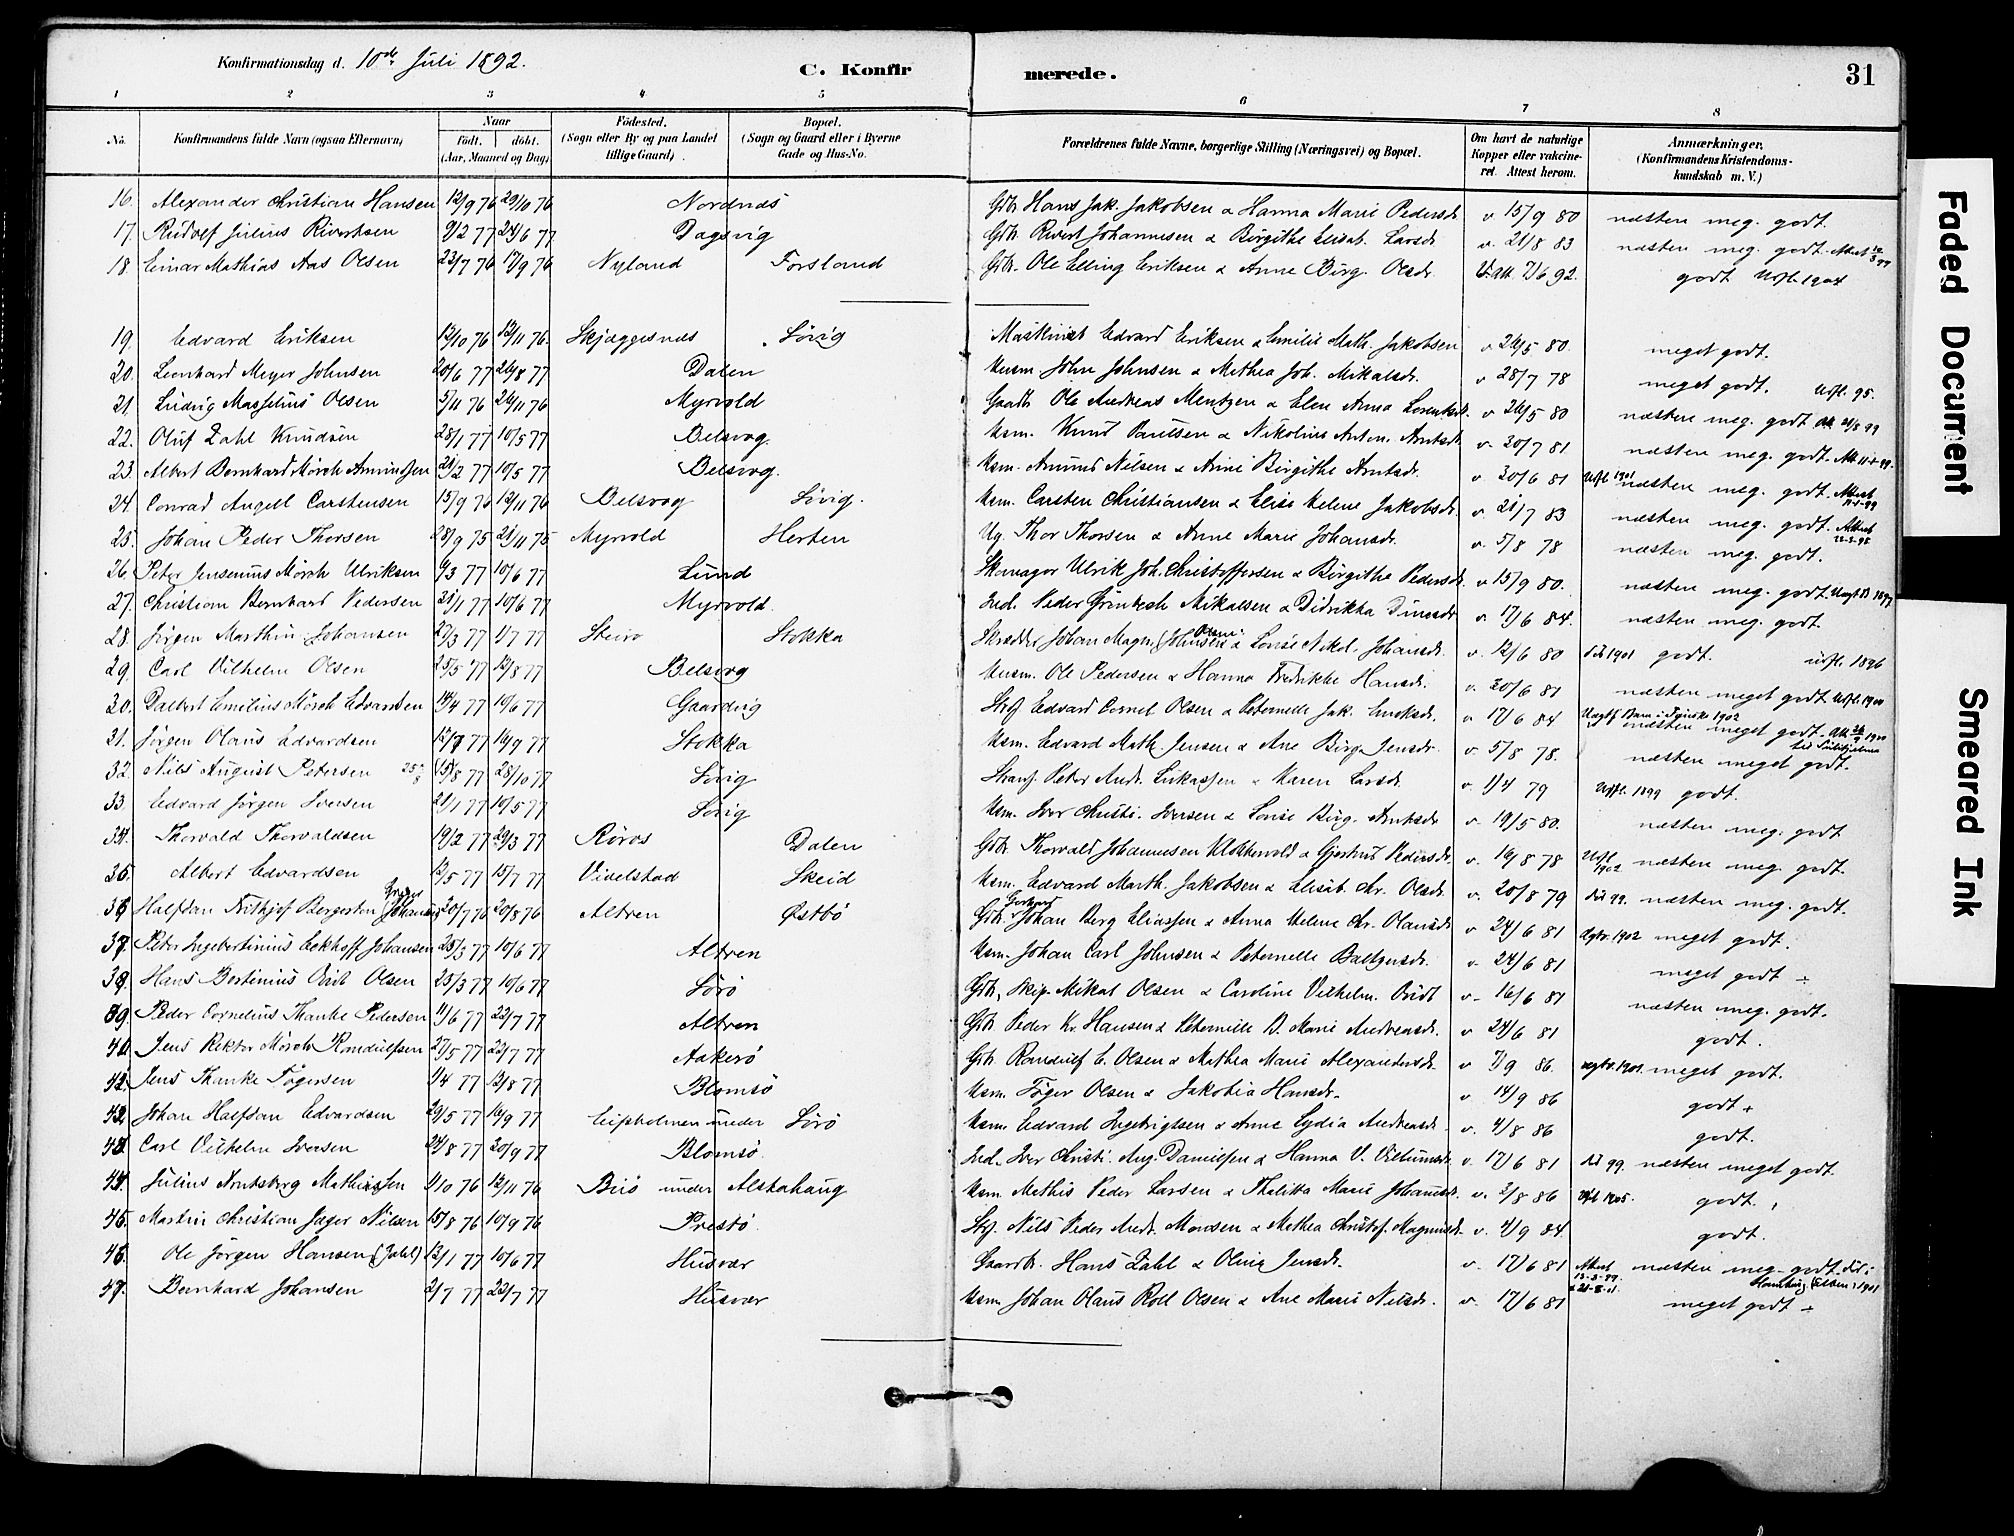 Konfirmationsdag d. 10de Juli 1892.
C. Konfirmerede.
31
1 2 3 4 5 6 7 8
No. Konfirmandens fulde Navn (ogsaa Efternavn) Naar født. døbt. (Aar, Maaned og Dag) Fødested. (Sogn eller By og paa Landet tillige Gaard) Bopæl. (Sogn og Gaard eller i Byerne Gade og Hus-No. Forældrenes fulde Navne, borgerlige Stilling (Næringsvei) og Bopæl. Om havt de naturlige Kopper eller vakcineret. Attest herom. Anmærkninger. (Konfirmandens Kristendomskundskab m. V.)
16. Alexander Christian Hansen 12/9 76 29/10 76 Nordnæs Gbr. Hans Jak. Jakobsen & Hanna Marie Pedersd. v 15/9 80 næsten meg. godt.
17. Rudolf Julius Rivertsen 9/2 77 24/6 77 Dagsvig Gbr. Rivert Johannesen & Birgithe Elisab. Larsdr. v. 21/8 83 næsten meg. godt.
18. Einar Mathias Aas Olsen 23/7 76 17/9 76 Nyland Forsland Gbr. Ole Elling Eriksen & Anne Birg. Olsdr. V. att. 7/6 92. godt Utfl. 1904
19. Edvard Eriksen 13/10 76 12/11 76. Skjeggesnæs Sövig Maskinist Edvard Eriksen & Emilie Math. Jakobsen v 26/5 80. meget godt.
20. Leonhard Meyer Johnsen 20/6 77 26/8 77 Dalen Husm. John Johnsen & Methea Joh. Mikalsdr. v 28/7 78 meget godt. Utfl. 95.
21. Ludvig Masselius Olsen 5/11 76 26/11 76 Myrvold Gaardbr. Ole Andreas Mentzen & Elen Anna Lorentsdr. v 26/5 80 næsten meg. godt
22. Oluf Zahl Knudsen 28/1 77 10/5 77 Belsvog Husm. Knut Paulsen & Nikoline Anton. Arntsdr. v. 20/7 81 næsten meg. godt.
23. Albert Bernhard Mörch Amundsen 21/2 77 10/5 77 Belsvog. Husm. Amund Nilsen & Anne Birgithe Arntsdr. v. 30/6 81 Utfl. 1901 næsten meg. godt.
24. Conrad Angell Carstensen 15/9 76 12/11 76 Belsvog Sövig. Husm. Carsten Christiansen & Elise Helene Jakobsdr. v. 21/7 83 næsten meg. godt.
25. Johan Peder Thorsen 28/9 75 21/11 75 Myrvold Herten Ug. Thor Thorsen & Anne Marie Johansdr. v. 5/8 78 næsten meg. godt.
26. Peter Jensenius Mörch Ulriksen 9/3 77 10/6 77 Lund Skomager Ulrik Joh. Christoffersen & Birgithe Pedersdr. v 15/9 80. næsten meg. godt.
27. Christian Bernhard Pedersen 21/1 77 10/6 77 Myrvold. Ind. Peder Mikalsen & Didrikka Dinesdr. v. 17/6 84. næsten meg. godt.
28. Jörgen Marthin Johansen 27/3 77 1/7 77 Steiro Stokka Skrædder Johan Magn. (Johansen & Lovise Nikol. Johansdr. v. 12/6 80 død 1901 godt. utfl. 1896
29. Carl Vilhelm Olsen 25/5 77 12/8 77 Belsvog Husm. Ole Pedersen & Hanna Fredrikke Hansdr. v. 30/6 81 næsten meget godt. Utfl. 1900
30. Dalbert Emilius Mörch Edvardsen 14/4 77 10/6 77 Gaardvig Edvard Cornel. Olsen & Peternelle Jak. v 17/6 84 næsten meget godt.
31. Jörgen Olaus Edvardsen 12/7 77 16/9 77 Stokka Husm. Edvard Math. Jensen & Ane Birg. Jensdr. v. 5/8 78. næsten meget godt.
32. Nils August Petersen 15/8 77 28/10 77 Sövig Peter Andr. Lukassen & Karen Larsdr. v. 1/4 79 Utfl. 1899 godt.
33. Edvard Jörgen Iversen 21/1 77 10/5 77 Sövig Husm. Iver Christi. Iversen & Lovise Birg. Arntsdr. v. 19/5 80. næsten meg. godt.
34. Thorvald Thorvaldsen 19/2 77 29/3 77 Röros Dalen Gbr. Thorvald Johannesen Klokkervold & Gjertrud Pedersdr. v. 16/8 78 Utfl. 1902 næsten meg. godt.
35. Albert Edvardsen 13/5 77 15/7 77 Vivelstad Skeid Husm. Edvard Marth. Jakobsen & Elisab. Chr. Olsdr. v. 20/8 79 død 99. næsten meg. godt.
36. Halfdan Frithjof Bergersten (Johansen 20/7 76 20/8 76 Altren Østbö Gbr. Johan Berg Eliassen & Anna Helene Chr. Olausdr. v 24/6 81 Ugtv. 1902 meget godt.
37. Peter Ingebertinius Eckhoff Johansen 28/3 77 10/6 77 Altren Husm. Johan Carl Johnsen & Peternelle Baltzersdr. v. 24/6 81 meget godt ÷
38. Hans Bertinius Qvit Olsen 23/3 77 10/6 77 Sörö Gbr. Skip. Mikal Olsen & Caroline Vilhelm. Qvidt v. 16/6 81 næsten meg. godt.
39. Peder Cornelius Thanke Pedersen 11/6 77 22/7 77 Altren Gbr. Peder Kr. Hansen & Peternille D. Marie Andreasdr. v 24/6 81 godt.
40. Jens Rektor Mörch Romdulfsen 27/5 77 22/7 77 Aakerö Gbr. Randulf E. Olsen & Mathea Marie Alexandersdr. v 7/9 86. ugtv. 1901. meget godt.
42. Jens Thanke Tögersen 1/4 77 12/8 77 Blomsö Husm. Töger Olsen & Jakobia Hansdr. v 14/9 86 godt +
42. Johan Halfdan Edvardsen 29/5 77 16/9 77 Leifsholmen under Sörö Husm. Edvard Ingebrigtsen & Anne Lydia Andreasdr. v. 4/8 86 godt.
43. Carl Vilhelm Iversen 24/8 77 20/9 77 Blomsö. Ind. Iver Christi. Aug. Danielsen & Hanna V. Villumsdr. v. 17/6 81 død 99. næsten meget godt
44. Julius Arntsberg Mathiassen 1/10 76 12/11 76 Buö under Alstahaug Husm. Mathis Peder Larsen & Thalitta Marie Johansdr. v. 3/8 86 Utfl. 1905. godt.
45. Martin Christian Jæger Nilsen 15/8 76 10/9 76 Prestö Nils Peder Andr. Monsen & Methea Christof. Magnusdr. v. 4/9 84. godt.
46. Ole Jörgen Hansen (Zahl) 12/1 77 10/6 77 Husvær Gaardbr. Hans Zahl & Oline Jensdr. v. 17/6 81 næsten meg. godt. død i Hamburg (Elben) 1901
47. Bernhard Johansen 2/7 77 22/7 77 Husvær Husm. Johan Olaus Roll Olsen & Ane Marie Nilsdr. v. 17/6 81 meget godt ÷
Faded Document
Smeared Ink